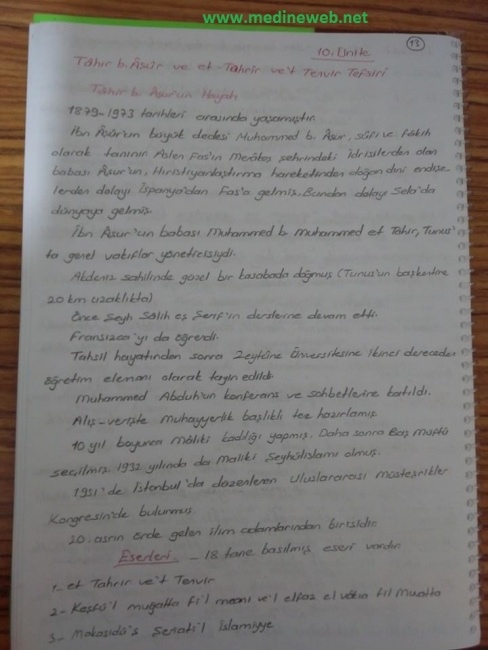 www.medineweb.net
13
10. Ünite
Tahir b. Âşûr ve et-Tahrîr ve't Tenvir Tefsiri
Tahir b. Aşur'un Hayatı
1879-1973 tarihleri arasında yaşamıştır.
İbn Âşûr'un büyük dedesi Muhammed b. Aşur, sûfi ve fakih
olarak tanınır. Aslen Fas'ın şehrindeki İdrisilerden olan
babası Âşur'un, Hıristiyanlaştırma hareketinden doğan dini endişe
lerden dolayı İspanya'dan Fas'a gelmiş. Bundan dolayı Sela'da
dünyaya gelmiş.
İbn Aşur'un babası Muhammed b. Muhammed et Tahir, Tunus'
ta genel vakıflar yöneticisiydi.
Akdeniz sahilinde güzel bir kasabada doğmuş (Tunus'un başkentine
20 km uzaklıkta)
Önce Şeyh Sâlih eş Şerif'in derslerine devam etti.
Fransızca'yı da öğrendi.
Tahsil hayatından sonra Zeytûne Üniversitesine ikinci dereceden
öğretim elemanı olarak tayin edildi.
Muhammed Abduh'un konferans ve sohbetlerine katıldı.
Alış-verişte Muhayyerlik başlıklı tez hazırlamış
10 yıl boyunca Mâliki kadılığı yapmış. Daha sonra Baş Müftü
seçilmiş 1932 yılında da Maliki Şeyhülislamı olmuş.
1951'de İstanbul'da düzenlenen Uluslararası Müsteşrikler
Kongresin'de bulunmuş
20. asrın önde gelen ilim adamlarından birisidir
Eserleri _ 18 tane basılmış eseri vardır
1- et Tahrir ve't Tenvir
2- Keşfü'l muğatta fi'l meani ve'l elfaz el vâkıa fil Muvatta
3- Makasıdü'ş Şeriati'l İslamiyye